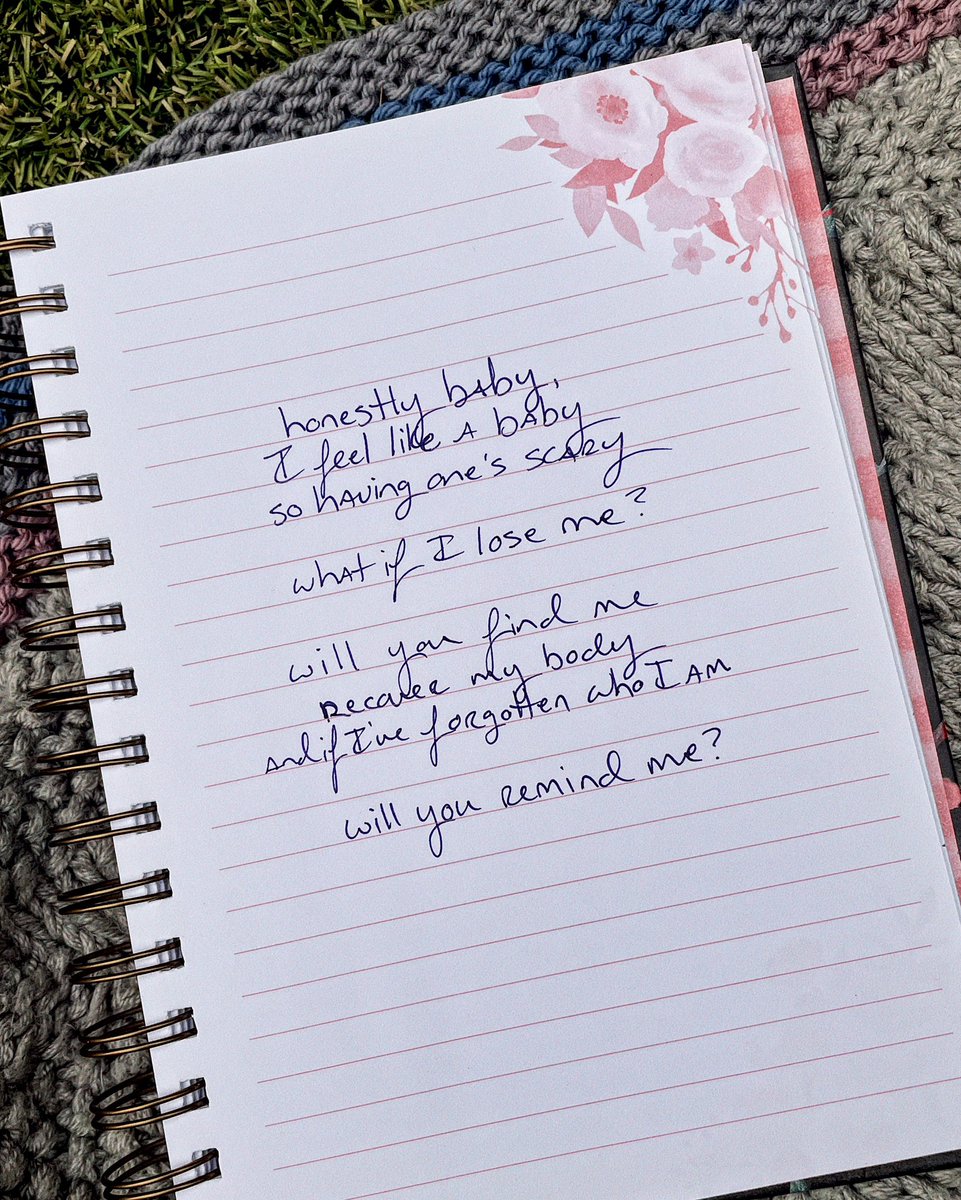 honestly baby,
I feel like A bAby
so hAving one's scARy
whAt if I lose me?
will you find me
Recover my body
And if I've foRgotten who I AM
will you Remind me?